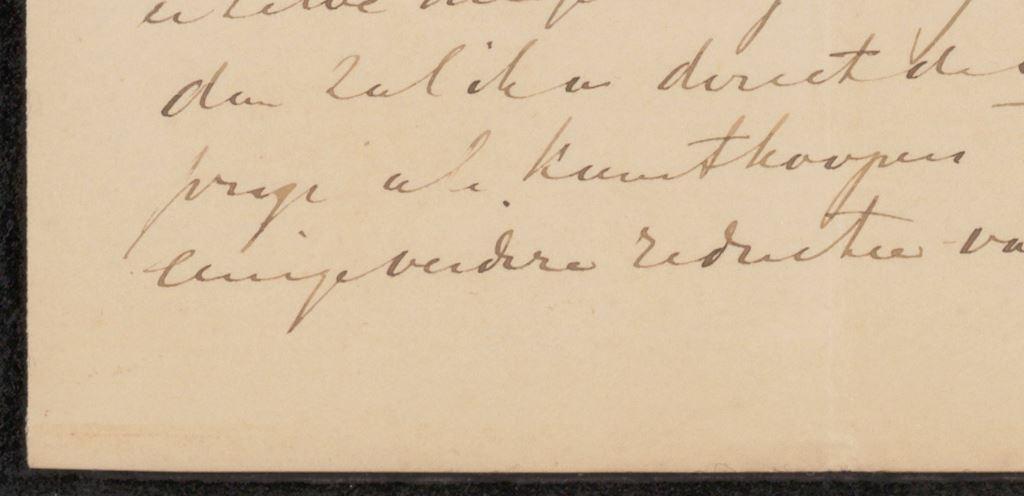 dan zal ik u direct de
prijs als kunstkooper
eenige verdere reductie va